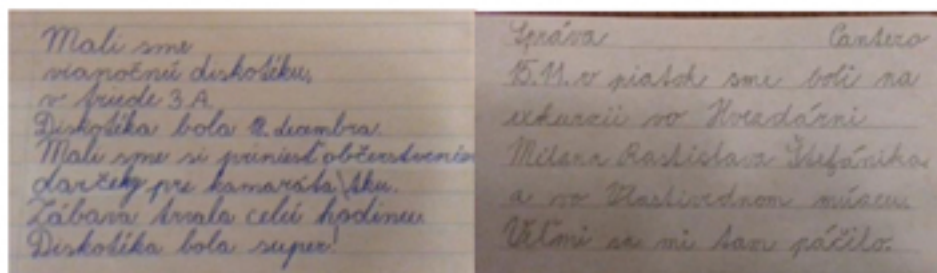 Mali sme
vianočnú diskotéku,
v triede 3.A.
Diskotéka bola 12. decembra.
Mali sme si priniesť občerstvenie
darčeky pre kamaráta\tku.
Zábava trvala celú hodinu.
Diskotéka bola super!
Správa Cantero
15.11. v piatok sme boli na
exkurzii vo Hvezdárni
Milana Rastislava Štefánika
a vo Vlastivednom múzeu.
Veľmi sa mi tam páčilo.